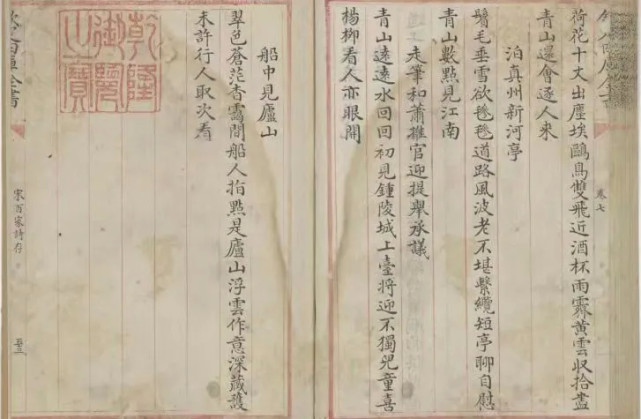 卷七
荷花十丈出塵埃鷗鳥雙飛近酒杯雨霽黃雲收拾盡
青山還會逐人來
泊真州新河亭
鬢毛垂雪欲毿毿道路風波老不堪繫纜短亭聊自慰
青山數點見江南
走筆和蕭推官迎提舉承議
青山遠遠水回回初見鍾陵城上臺將迎不獨兒童喜
楊柳看人亦眼開
船中見廬山
翠色蒼茫杳靄間船人指點是廬山浮雲作意深藏護
未許行人取次看
乾隆御覽之寶
宋百家詩存